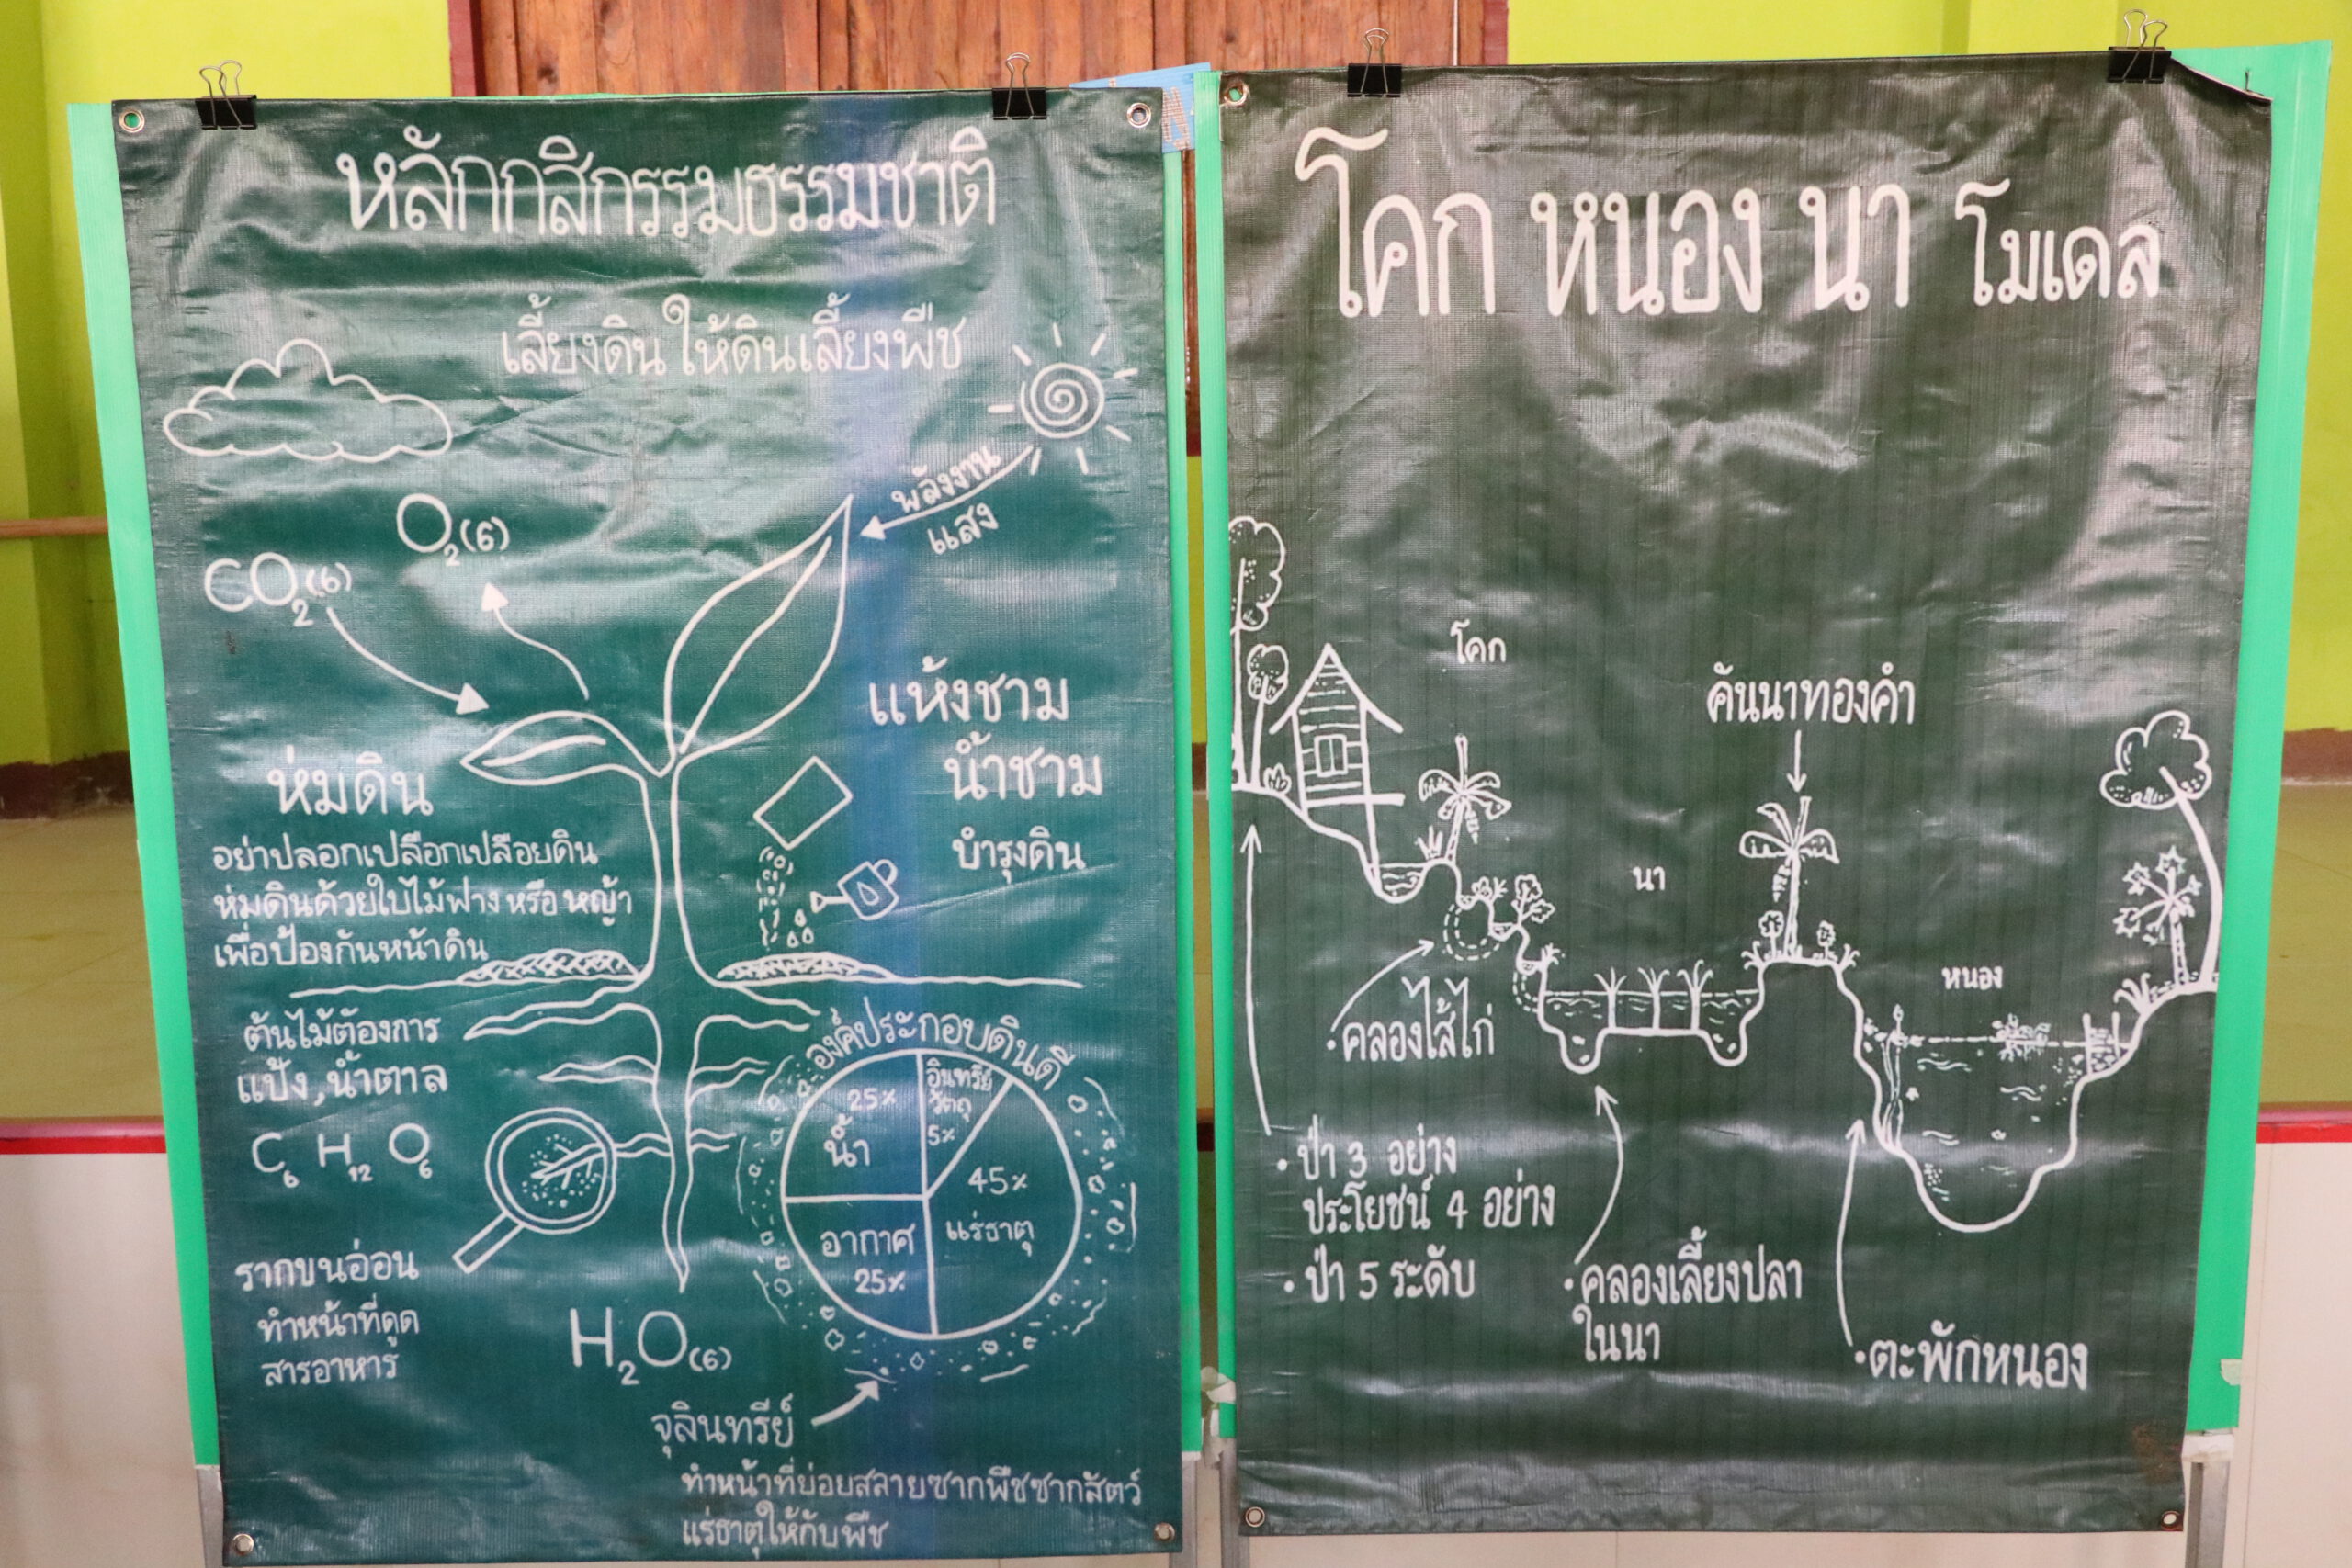 หลักกสิกรรมธรรมชาติ
เลี้ยงดิน ให้ดินเลี้ยงพืช
พลังงาน
แสง
O2(6)
CO2(6)
แห้งชาม
น้ำชาม
บำรุงดิน
ห่มดิน
อย่าปลอกเปลือกเปลือยดิน
ห่มดินด้วยใบไม้ฟาง หรือ หญ้า
เพื่อป้องกันหน้าดิน
ต้นไม้ต้องการ
แป้ง, น้ำตาล
C6 H12 O6
รากขนอ่อน
ทำหน้าที่ดูด
สารอาหาร
H2O(6)
องค์ประกอบดินดี
25% น้ำ
อินทรีย์
วัตถุ
5%
45%
แร่ธาตุ
อากาศ
25%
จุลินทรีย์
ทำหน้าที่ย่อยสลายซากพืชซากสัตว์
แร่ธาตุให้กับพืช
โคก หนอง นา โมเดล
โคก
คันนาทองคำ
นา
หนอง
• คลองไส้ไก่
• ป่า 3 อย่าง
ประโยชน์ 4 อย่าง
• ป่า 5 ระดับ
• คลองเลี้ยงปลา
ในนา
• ตะพักหนอง